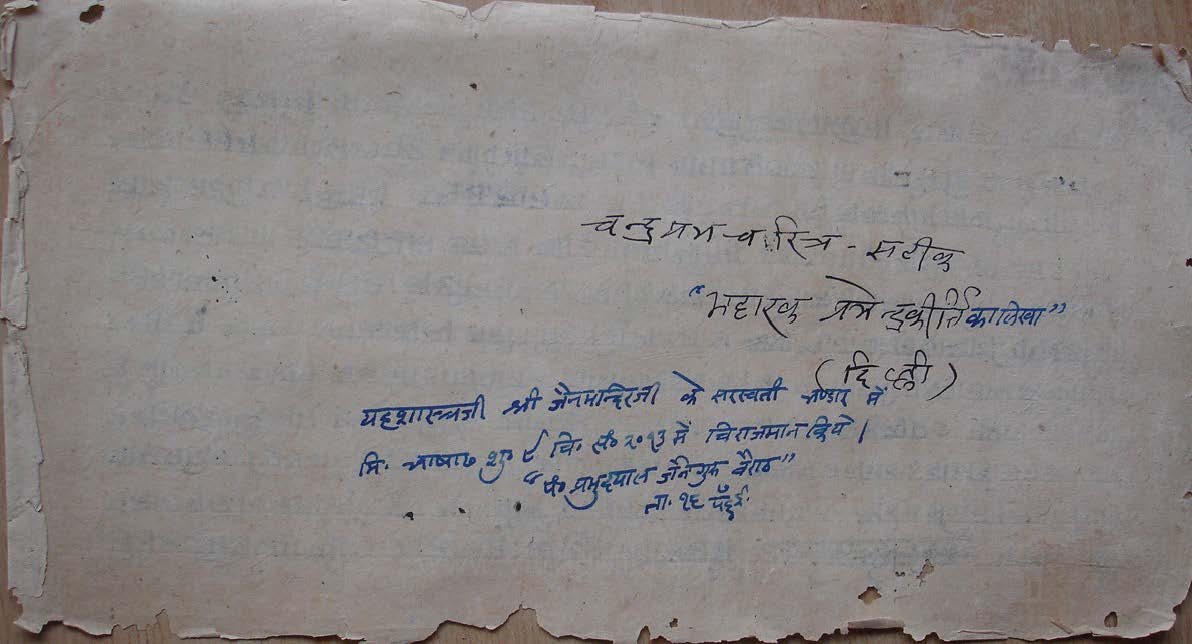 चन्द्रप्रभ-चारित्र - सटीक
"भट्टारक द्रकीर्त्ति का लिखा"
(दिल्ली)
यह शास्त्रजी श्री जैनमन्दिरजी के सरस्वती भण्डार में
मि. आषाढ शु ९ वि. सं० २०१३ में विराजमान किये।
"पं० प्रभुदयाल जैन वैराठ"
ता. १६